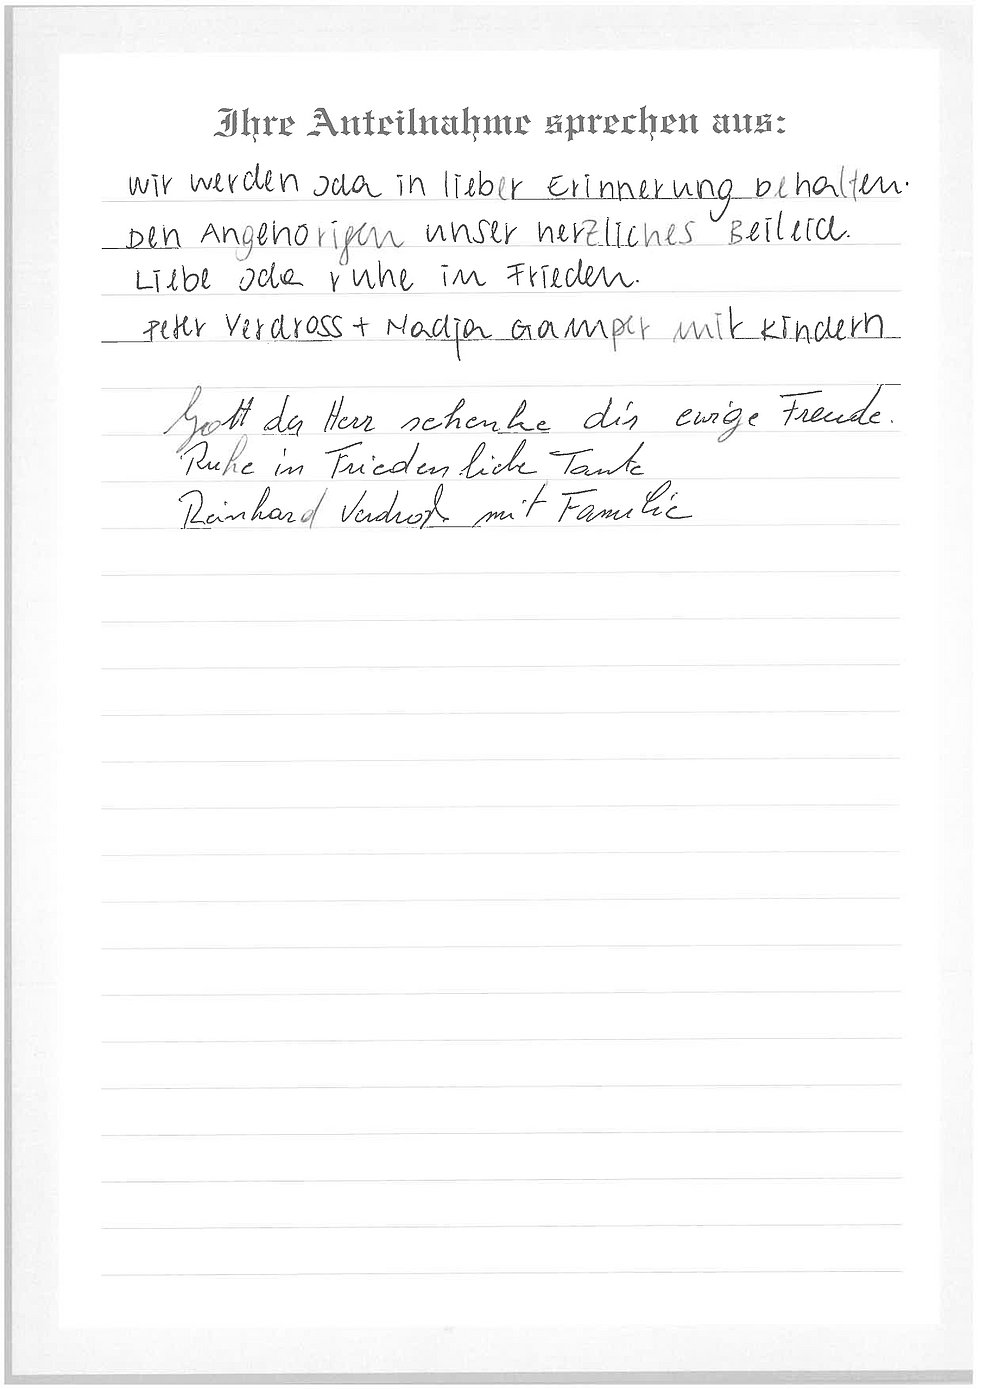 Ihre Anteilnahme sprechen aus:
wir werden oda in lieber Erinnerung behalten.
Den Angehörigen unser herzliches Beileid.
Liebe oda ruhe in Frieden.
Peter Verdross + Nadja Gamper mit Kindern
Gott der Herr schenke dir ewige Freude.
Ruhe in Frieden liebe Tante
Reinhard Verdroß mit Familie